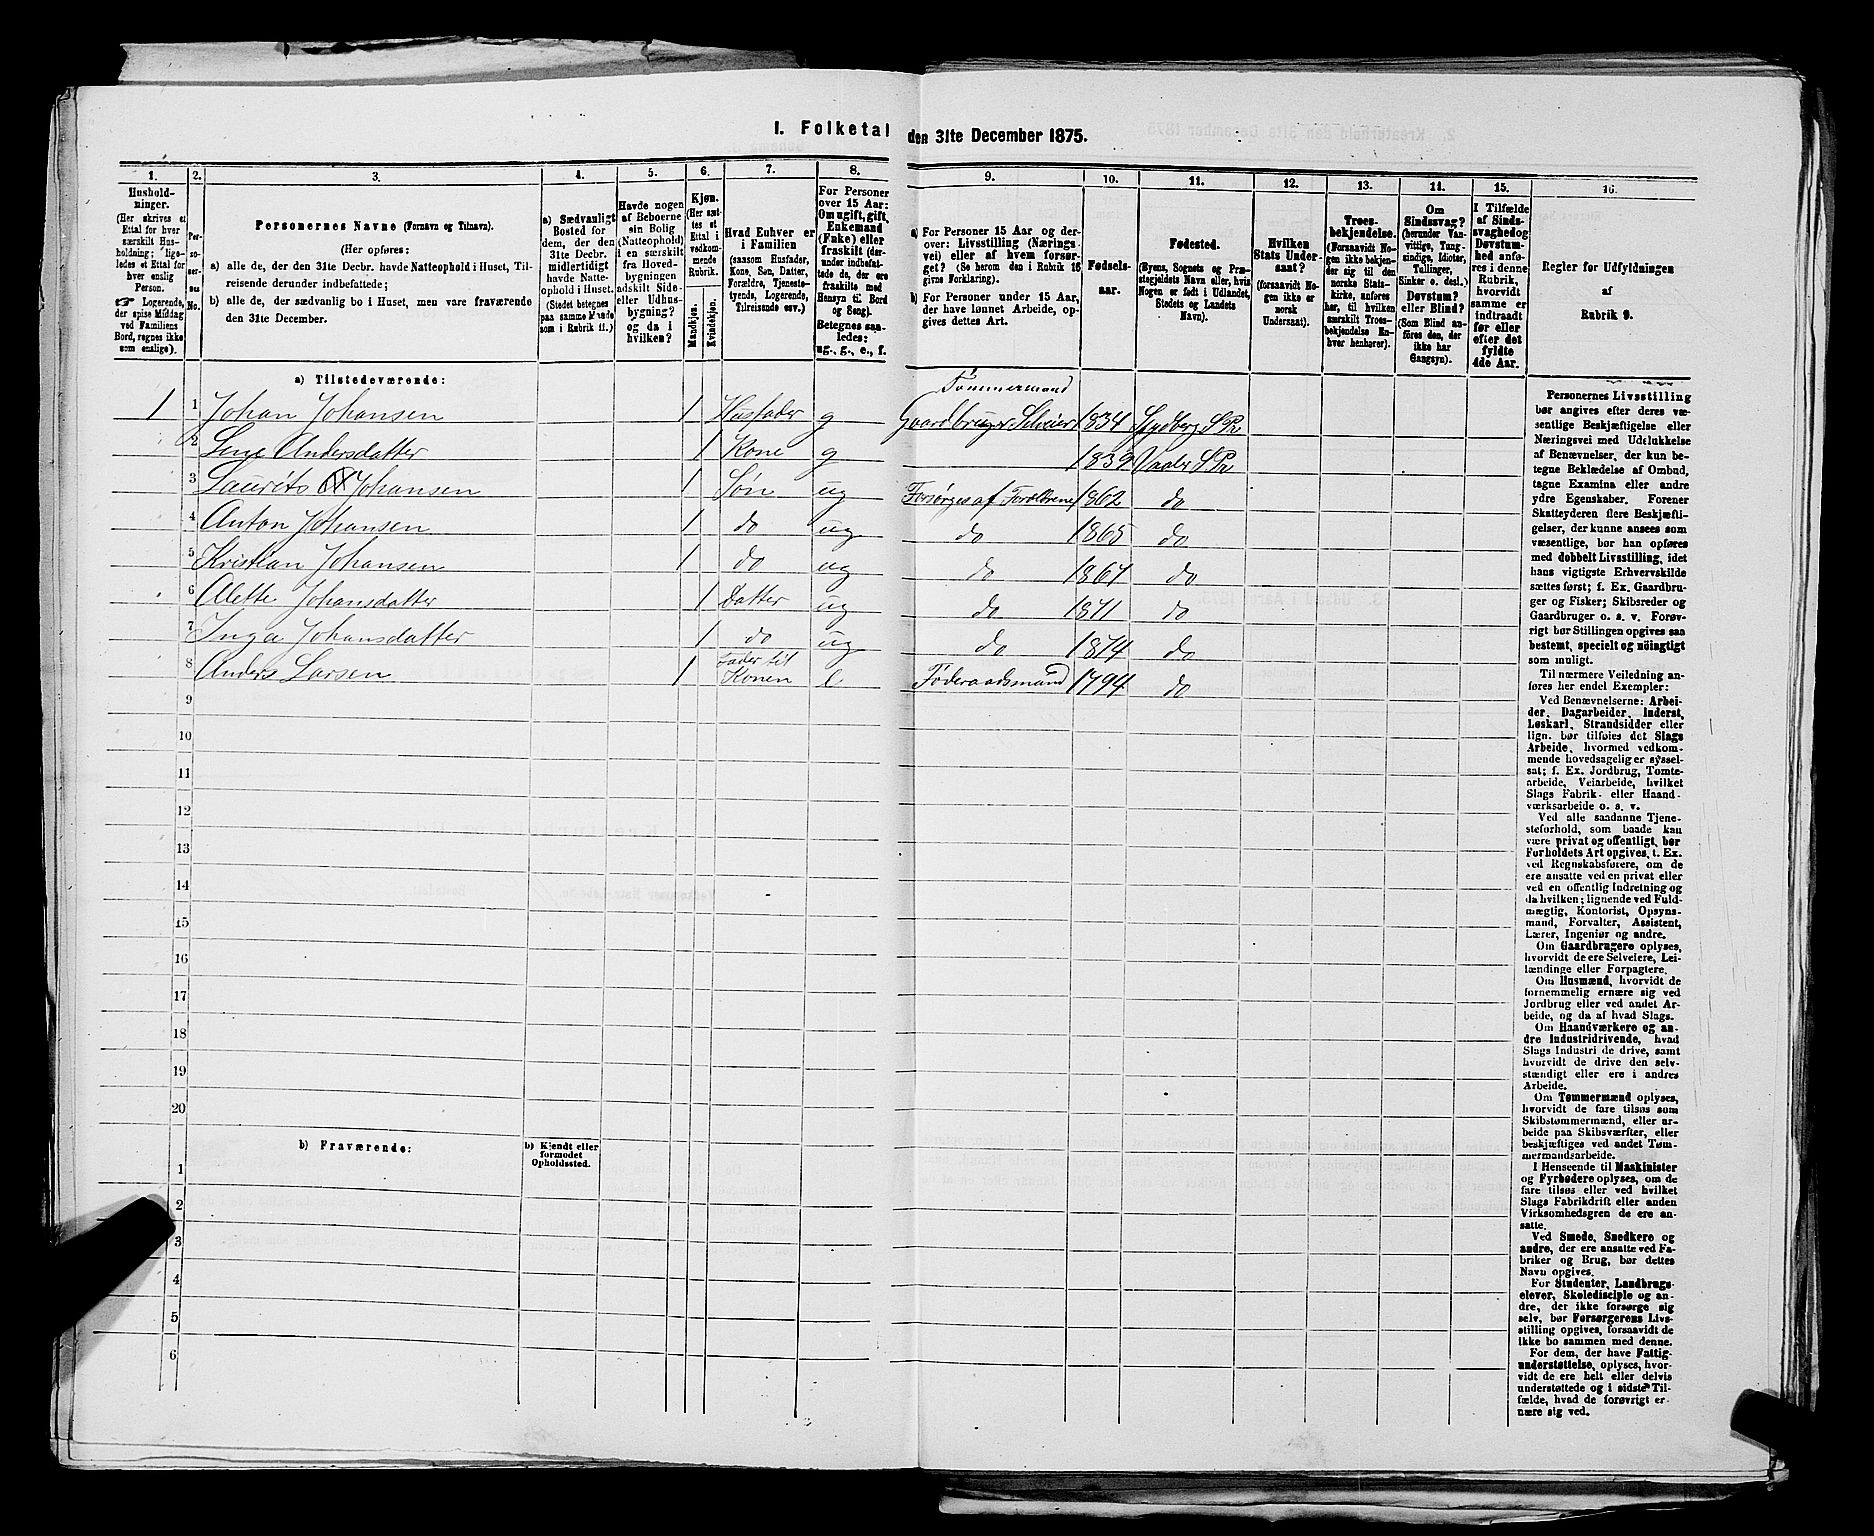 I. Folketal den 31te December 1875.
1. 2. 3. 4. 5. 6. 7. 8. 9. 10. 11. 12. 13. 14. 15. 16.
Hushold-
ninger.
(Her skrives et
Ettal for hver
særskilt Hus-
holdning; lige-
ledes et Ettal for
hver enslig
Person.
☞ Logerende,
der spise Middag
ved Familiens
Bord, regnes ikke
som enslige).
Per-
so-
ner-
nes
No.
Personernes Navne (Fornavn og Tilnavn).
(Her opføres:
a) alle de, der den 31te Decbr. havde Natteophold i Huset, Til-
reisende derunder indbefattede;
b) alle de, der sædvanlig bo i Huset, men vare fraværende
den 31te December.
a) Sædvanligt
Bosted for
dem, der den
31te Decbr.
midlertidigt
havde Natte-
ophold i Huset.
(Stedet betegnes
paa samme Maade
som i Rubrik 11.)
Havde nogen
af Beboerne
sin Bolig
(Natteophold)
i en særskilt
fra Hoved-
bygningen
adskilt Side-
eller Udhus-
bygning?
og da i
hvilken?
Kjøn.
(Her sæt-
tes et
Ettal i
vedkom-
mende
Rubrik.
Mandkjøn.
Kvindekjøn.
Hvad Enhver er
i Familien
(saasom Husfader,
Kone, Søn, Datter,
Forældre, Tjeneste-
tyende, Logerende,
Tilreisende osv.)
For Personer
over 15 Aar:
Om ugift, gift,
Enkemand
(Enke) eller
fraskilt (der-
under indbefat-
tede de, der ere
fraskilte med
Hensyn til Bord
og Seng).
Betegnes saa-
ledes:
ug., g., e., f.
a) For Personer 15 Aar og der-
over: Livsstilling (Nærings-
vei) eller af hvem forsør-
get? (Se herom den i Rubrik 16
givne Forklaring).
b) For Personer under 15 Aar,
der have lønnet Arbeide, op-
gives dettes Art.
Fødsels-
aar.
Fødested.
(Byens, Sognets og Præ-
stegjeldets Navn eller, hvis
Nogen er født i Udlandet,
Stedets og Landets
Navn).
Hvilken
Stats Under-
saat?
(forsaavidt No-
gen ikke er
norsk
Undersaat).
Troes-
bekjendelse.
(Forsaavidt No-
gen ikke bekjen-
der sig til den
norske Stats-
kirke, anføres
her, til hvilken
særskilt Troes-
bekjendelse En-
hver henhører).
Om
Sindssvag?
(herunder Van-
vittige, Tung-
sindige, Idioter,
Tullinger,
Sinker o. desl.)
Døvstum?
eller Blind?
(Som Blind an-
føres den, der
ikke har
Gangsyn).
I Tilfælde
af Sinds-
svaghed og
Døvstum-
hed anfø-
res i denne
Rubrik,
hvorvidt
samme er
indtraadt
før eller
efter det
fyldte
4de Aar.
Regler for Udfyldningen
af
Rubrik 9.
a) Tilstedeværende:
1 1 Johan Johansen 1 Husfader g Tømmermand Gaardbruger Selveier 1834 Spydberg S Pr
2 Lene Andersdatter 1 Kone g 1839 Vaaler S Pr
3 Laurits Johansen 1 Søn ug Forsørges af Forældrene 1862 do
4 Anton Johansen 1 do ug do 1865 do
5 Kristian Johansen 1 do ug do 1867 do
6 Alette Johansdatter 1 Datter ug do 1871 do
7 Inga Johansdatter 1 do ug do 1874 do
8 Anders Larsen 1 Fader til Konen e Føderaadsmand 1794 do
9
10
11
12
13
14
15
16
17
18
19
20
b) Fraværende:
b) Kjendt eller
formodet
Opholdssted.
1
2
3
4
5
6
Personernes Livsstilling
bør angives efter deres væ-
sentlige Beskjæftigelse eller
Næringsvei med Udelukkelse
af Benævnelser, der kun be-
tegne Beklædelse af Ombud,
tagne Examina eller andre
ydre Egenskaber. Forener
Skatteyderen flere Beskjæfti-
gelser, der kunne ansees som
væsentlige, bør han opføres
med dobbelt Livsstilling, idet
hans vigtigste Erhvervskilde
sættes først; f. Ex. Gaardbru-
ger og Fisker; Skibsreder og
Gaardbruger o. s. v. Forøv-
rigt bør Stillingen opgives saa
bestemt, specielt og nøiagtigt
som muligt.
Til nærmere Veiledning an-
føres her endel Exempler:
Ved Benævnelserne: Arbei-
der, Dagarbeider, Inderst,
Løskarl, Strandsidder eller
lign. bør tilføies det Slags
Arbeide, hvormed vedkom-
mende hovedsagelig er syssel-
sat; f. Ex. Jordbrug, Tomte-
arbeide, Veiarbeide, hvilket
Slags Fabrik- eller Haand-
værksarbeide o. s. v.
Ved alle saadanne Tjene-
steforhold, som baade kan
være privat og offentligt, bør
Forholdets Art opgives, t. Ex.
ved Regnskabsførere, om de
ere ansatte ved en privat eller
ved en offentlig Indretning og
da hvilken; lignende ved Fuld-
mægtig, Kontorist, Opsyns-
mand, Forvalter, Assistent,
Lærer, Ingeniør og andre.
Om Gaardbrugere oplyses,
hvorvidt de ere Selveiere, Lei-
lændinge eller Forpagtere.
Om Husmænd, hvorvidt de
fornemmelig ernære sig ved
Jordbrug eller ved andet Ar-
beide, og da af hvad Slags.
Om Haandværkere og an-
dre Industridrivende, hvad
Slags Industri de drive, samt
hvorvidt de drive den selv-
stændigt eller ere i andres
Arbeide.
Om Tømmermænd oplyses,
hvorvidt de fare tilsøs som
Skibstømmermænd, eller ar-
beide paa Skibsværfter, eller
beskjæftiges ved andet Tøm-
mermandsarbeide.
I Henseende til Maskinister
og Fyrbødere oplyses, om de
fare tilsøs eller ved hvilket
Slags Fabrikdrift eller anden
Virksomhedsgren de ere an-
satte.
Ved Smede, Snedkere og
andre, der ere ansatte ved Fa-
briker og Brug, bør dettes
Navn opgives.
For Studenter, Landbrugs-
elever, Skoledisciple og an-
dre, der ikke forsørge sig
selv, bør Forsørgerens Livs-
stilling opgives, forsaavidt de
ikke bo sammen med denne.
For dem, der have Fattig-
understøttelse, oplyses, hvor-
vidt de ere helt eller delvis
understøttede og i sidste Til-
fælde, hvad de forøvrigt er-
nære sig ved.